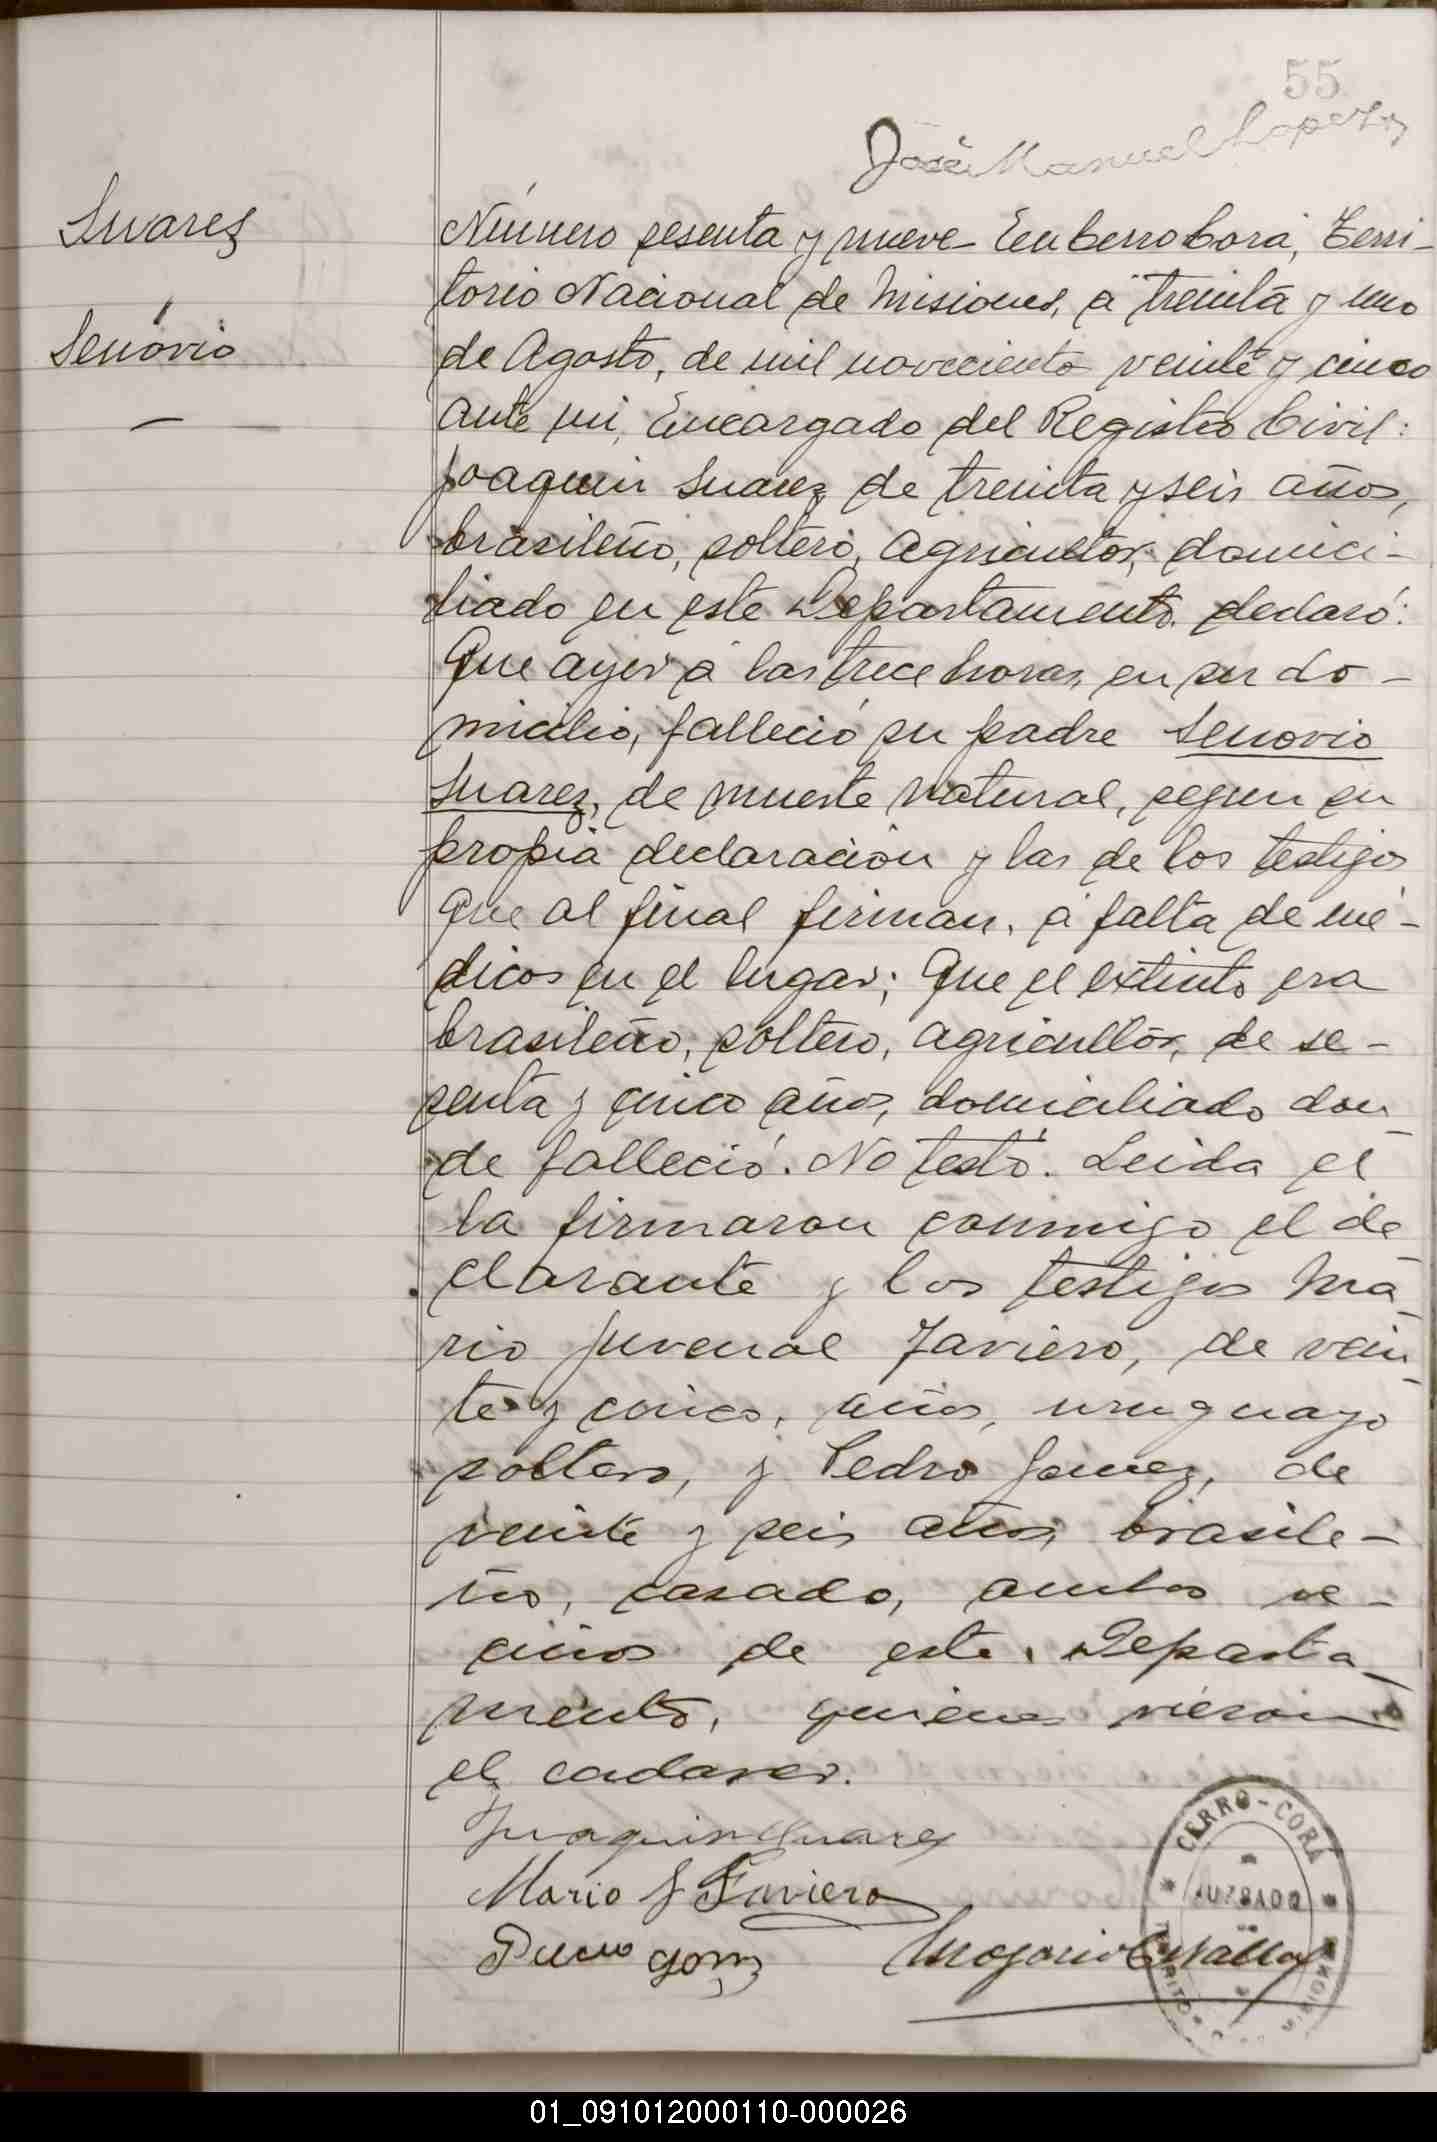 55
José Manuel Lopez
Suarez
Senovio
Número sesenta y nueve En Cerro Corá, Terri-
torio Nacional de Misiones, á treinta y uno
de Agosto, de mil novecientos veinte y cinco
ante mi, Encargado del Registro Civil:
Joaquin Suarez de treinta y seis años,
brasileño, soltero, Agricultor, domici-
liado en este Departamento. declaró:
Que ayer á las trece horas, en su do-
micilio, falleció su padre Senovio
Suarez, de muerte natural, segun su
propia declaración y las de los testigos
que al final firman, á falta de mé-
dicos en el lugar; Que el extinto era
brasileño, soltero, agricultor, de se-
senta y cinco años, domiciliado don-
de falleció. No testó. Leida el
la firmaron conmigo el de-
clarante y los testigos Ma-
rio Juvenal Faviero, de vein-
te y cinco, años, uruguayo
soltero, y Pedro Gomez, de
veinte y seis años, brasile-
ño, casado, ambos ve-
cinos de este Departa-
mento, quienes vieron
el cadaver.
Juaquin Suarez
Mario J Faviero
Pedro Gomz
CERRO-CORÁ
JUZGADO
01_091012000110-000026